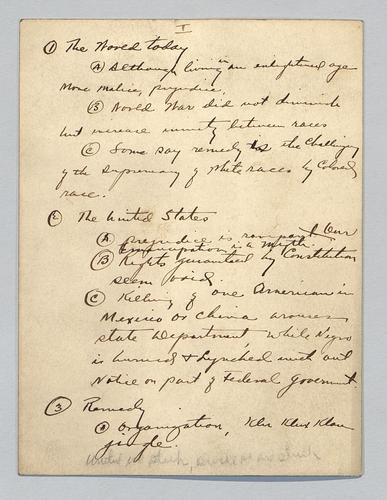 I
① The World today
Ⓐ Although living in an enlightened age
More malice, prejudice.
Ⓑ World War did not diminish
but increase enmity between races
Ⓒ Some say remedy is the Challenge
of the Supremacy of White races by Colored
race.
② The United States
Ⓐ Prejudice is rampant Our
Emancipation is a Myth.
Ⓑ Rights guaranteed by Constitution
seem void.
Ⓒ Killing of one American in
Mexico or China arouses
state Department, while Negro
is burned & Lynched with out
Notice on part of Federal Government.
③ Remedy
Ⓐ Organization, Klu Klux Klan
Judge.
United we stick, divided we are stuck